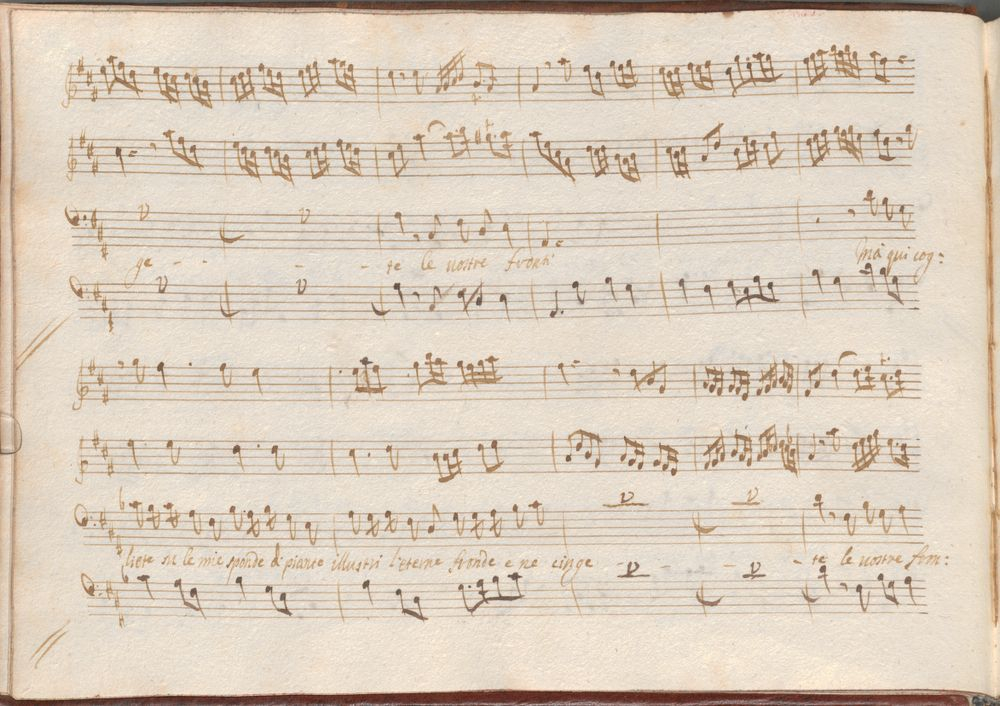 ge - - - - te le nostre fronti Mà qui cog:
liete sù le mie sponde di piante illustri l'eterne fronde e ne cinge - - - te le nostre fron: